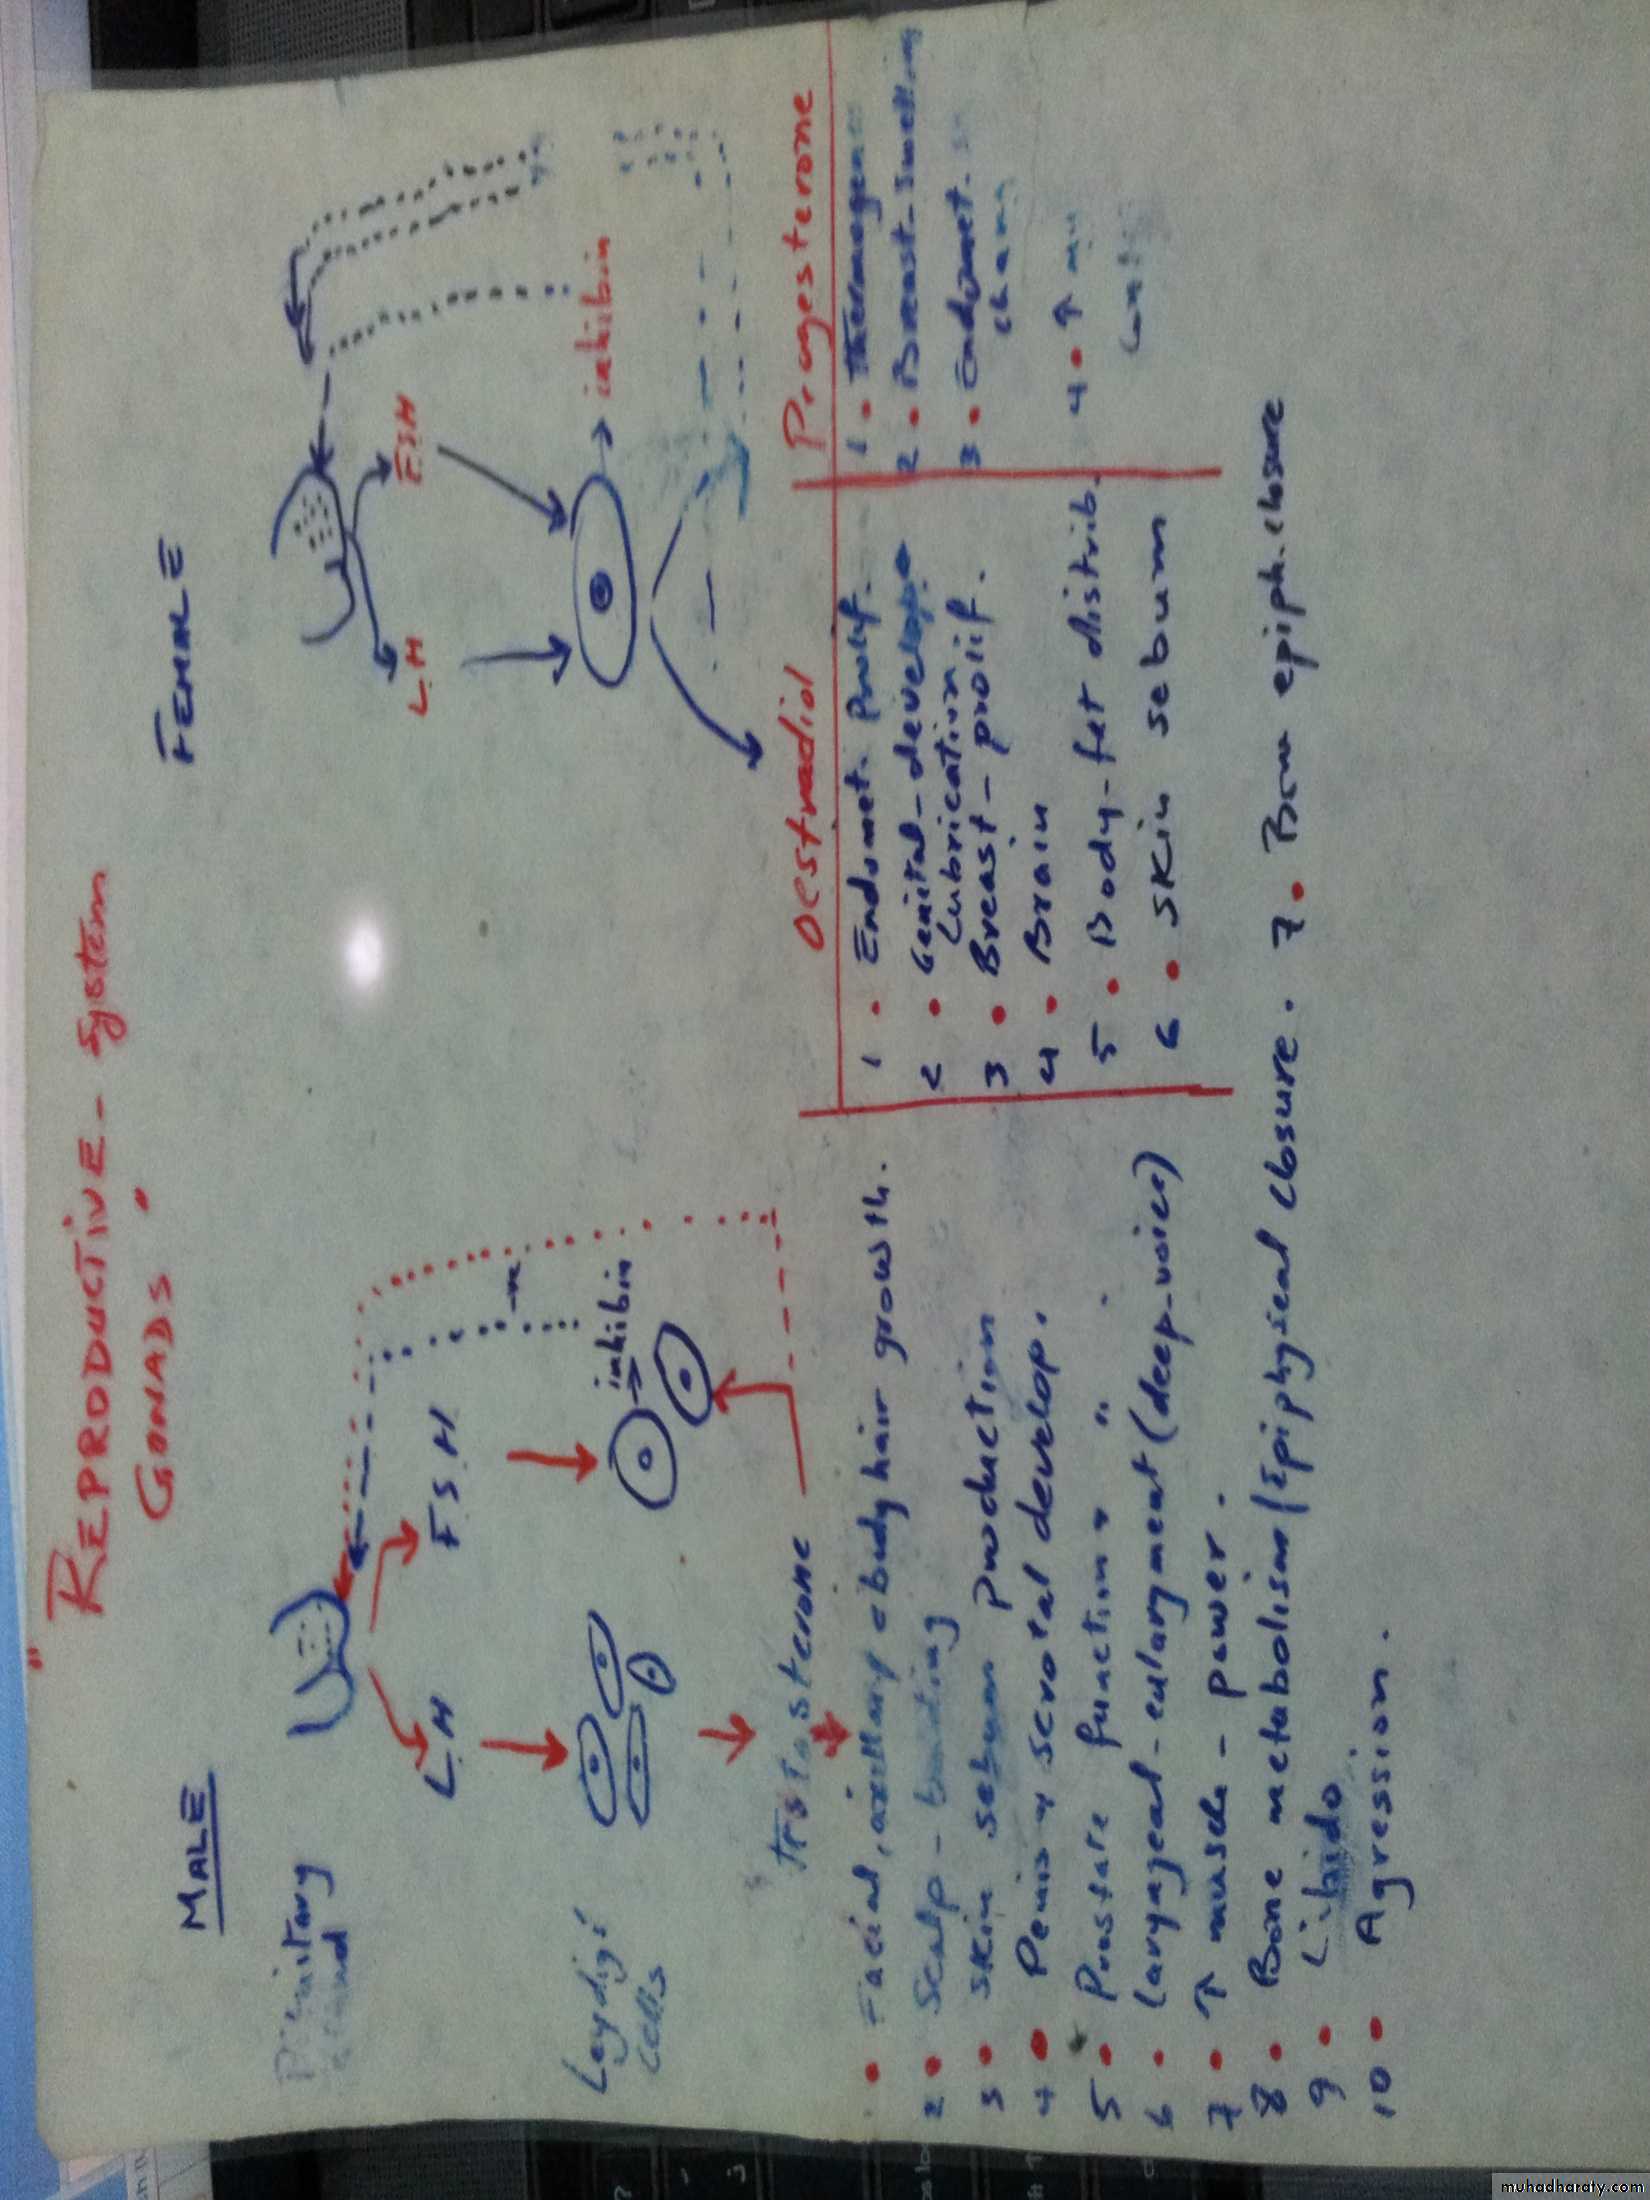 "REPRODUCTIVE - System
GONADS"
MALE
FEMALE
Pituitary
LH
FSH
LH
FSH
Leydig'
cells
inhibin
-ve
inhibin
Testosterone
Oestradiol
Progesterone
• Facial, axillary & body hair growth.
2 • Scalp - balding
3 • Skin sebum production
4 • Penis & scrotal develop.
5 • Prostate function " "
6 • Laryngeal - enlargment (deep-voice)
7 • ↑ muscle - power.
8 • Bone metabolism/Epiphyseal closure.
9 • Libido
10 • Agression.
1 • Endomet. Prolif.
2 • Genital - develop
Lubrication
3 • Breast - prolif.
4 • Brain
5 • Body-fat distrib.
6 • Skin sebum
7 • Bone epiph. closure
1 •
2 • Breast - Swelling
3 • Endomet.
4 • ↑
muhadharaty.com